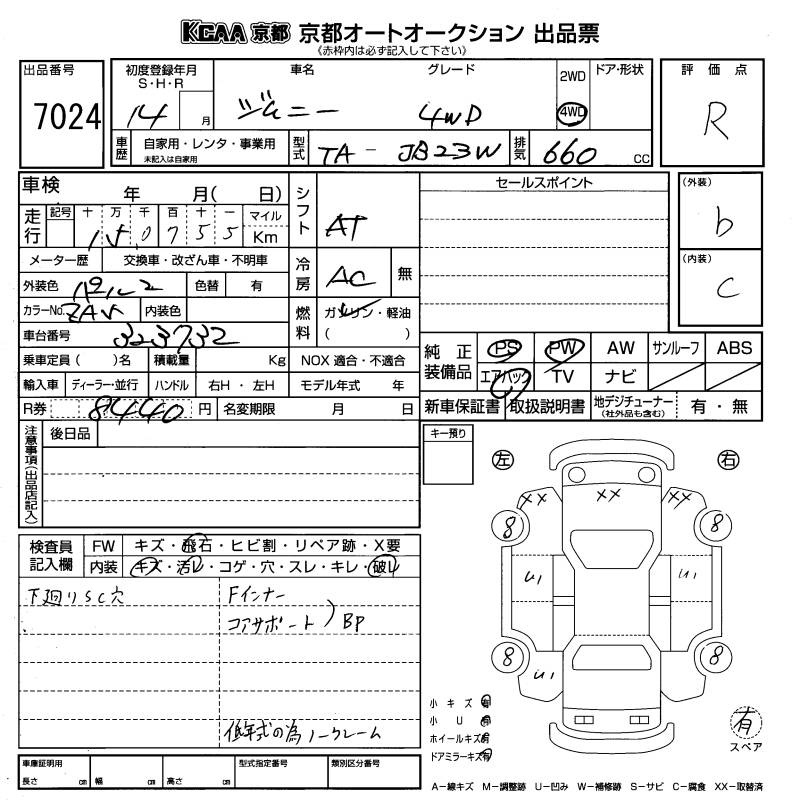 KCAA 京都 京都オートオークション 出品票
《赤枠内は必ず記入して下さい》
出品番号
7024
初度登録年月
S・H・R
14 月
車名
ジムニー
グレード
4WD
2WD
4WD
ドア・形状
評価点
R
車歴
自家用・レンタ・事業用
未記入は自家用
型式
TA-JB23W
排気
660 cc
車検 年 月( 日)
シフト
AT
セールスポイント
(外装)
b
走行
記号 十 万 千 百 十 一 マイル
150755 Km
メーター歴 交換車・改ざん車・不明車
冷房
AC 無
(内装)
C
外装色 色替 有
カラーNo. ZAV 内装色
燃料
ガソリン・軽油
( )
車台番号 323732
純正装備品
PS PW AW サンルーフ ABS
エアバッグ TV ナビ
乗車定員( )名 積載量 Kg NOX 適合・不適合
輸入車 ディーラー・並行 ハンドル 右H・左H モデル年式 年
新車保証書 取扱説明書 地デジチューナー (社外品も含む) 有・無
R券 8440 円 名変期限 月 日
注意事項(出品店記入)
後日品
キー預り
左 右
XX XX XX
8 8
U1 U1
8 8
U1
検査員記入欄
FW キズ・飛石・ヒビ割・リペア跡・X要
内装 キズ・汚レ・コゲ・穴・スレ・キレ・破レ
下廻りSC穴
Fインナー
コアサポート) BP
低年式の為ノークレーム
小キズ 有
小U 有
ホイールキズ 有
ドアミラーキズ 有
有
スペア
車庫証明用
長さ cm 幅 cm 高さ cm
型式指定番号
類別区分番号
A-線キズ M-調整跡 U-凹み W-補修跡 S-サビ C-腐食 XX-取替済